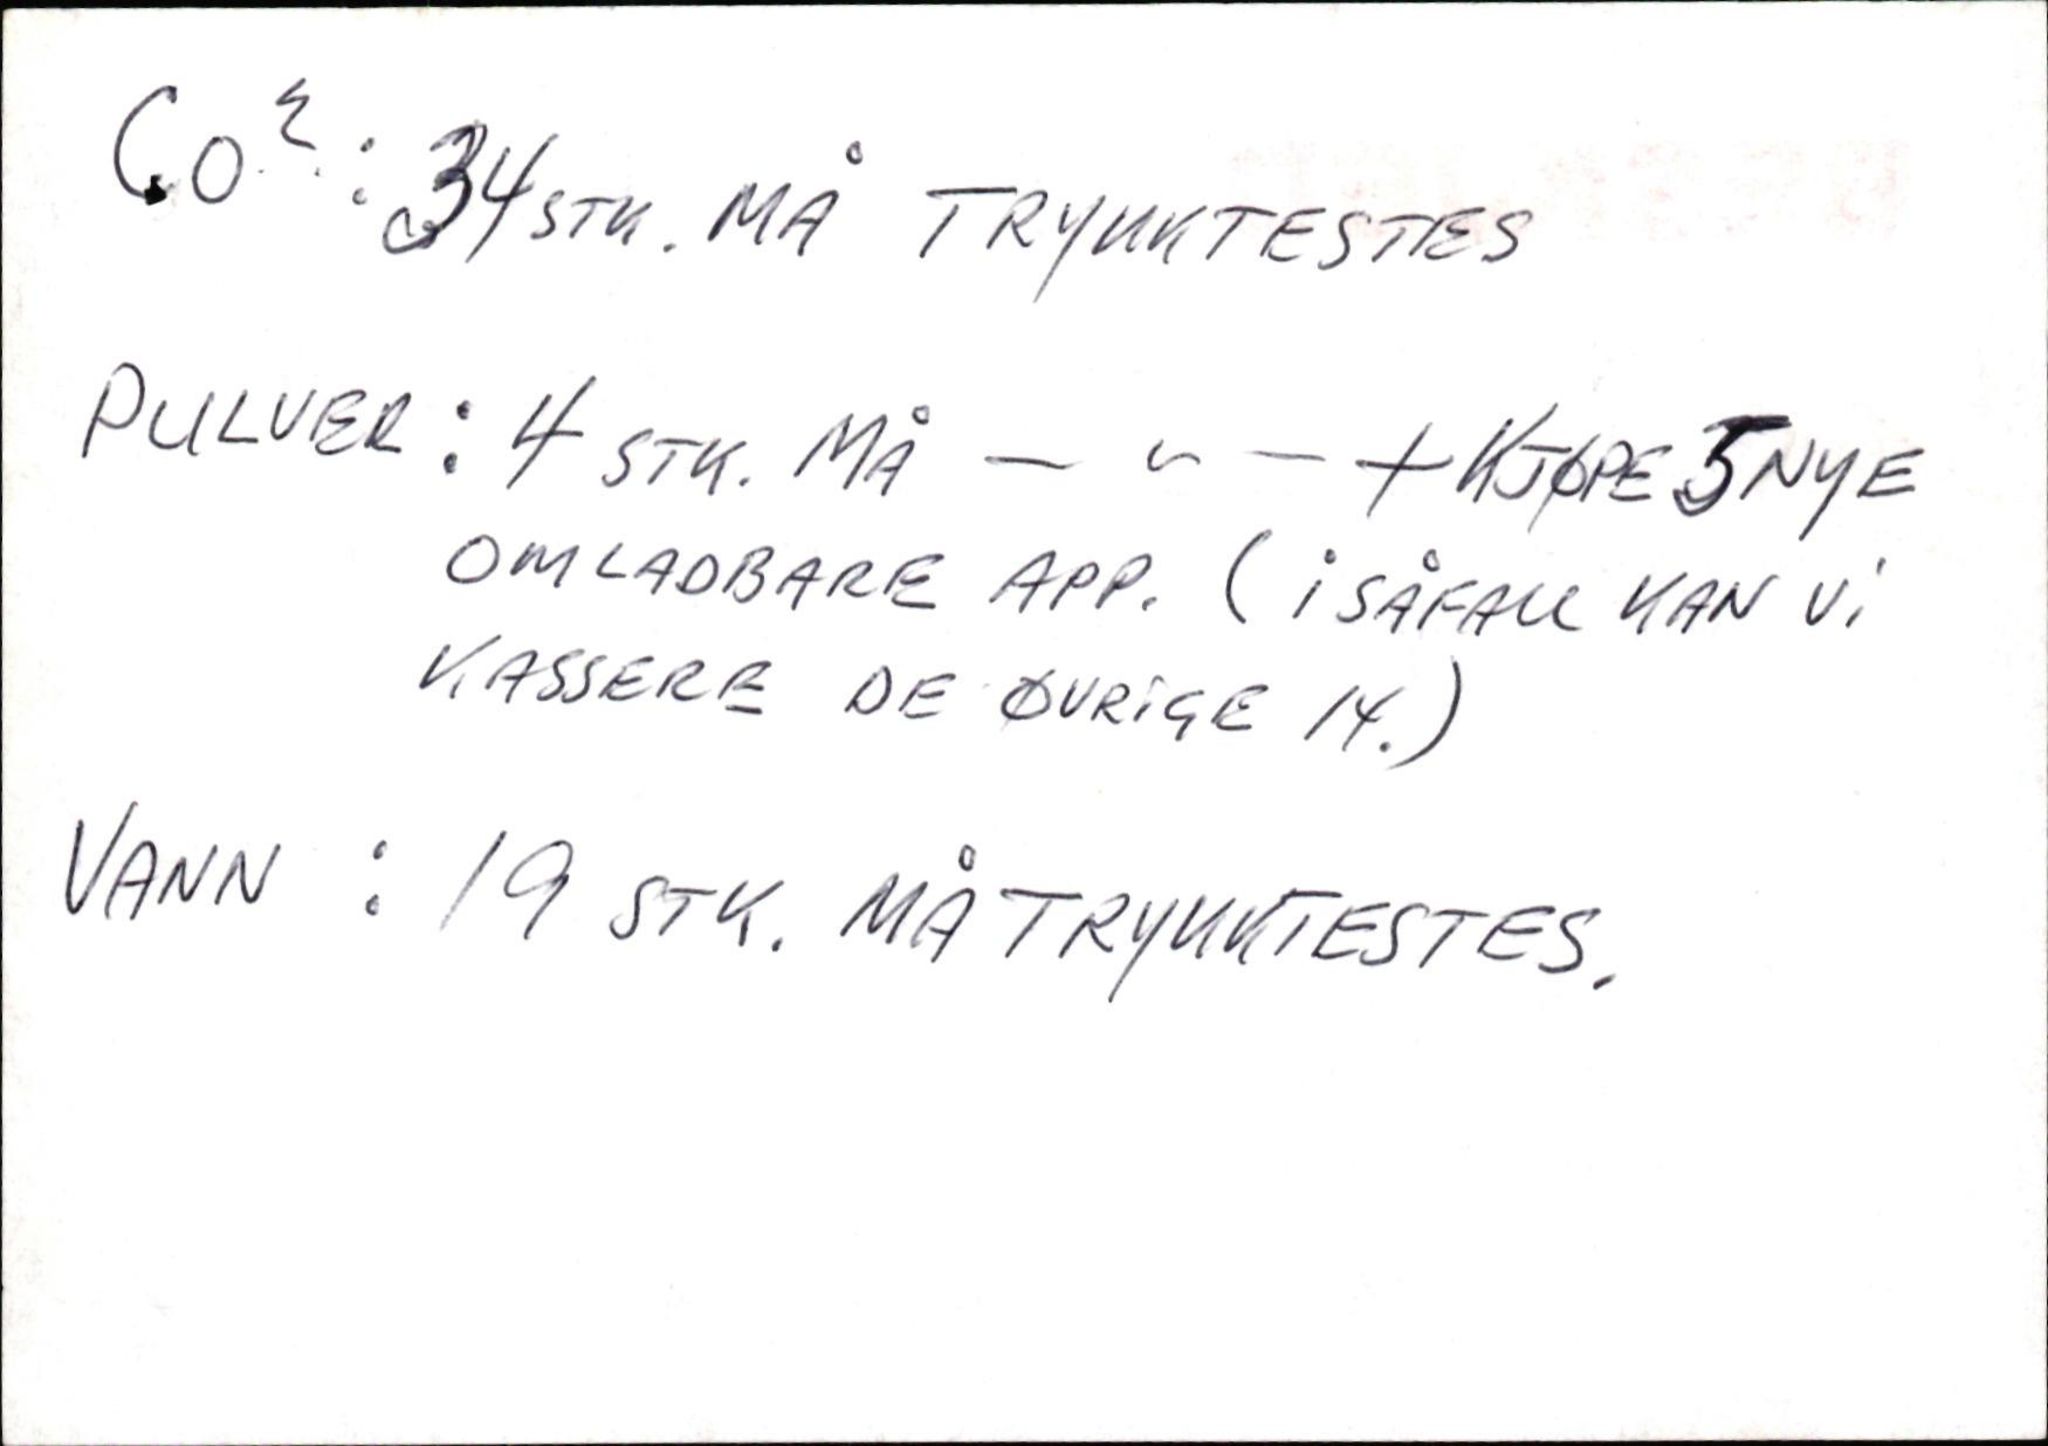 CO²: 34 STK. MÅ TRYKKTESTES
PULVER: 4 STK. MÅ — " — + KJØPE 5 NYE
OMLADBARE APP. (I SÅFALL KAN VI
KASSERE DE ØVRIGE 14.)
VANN : 19 STK. MÅ TRYKKTESTES.